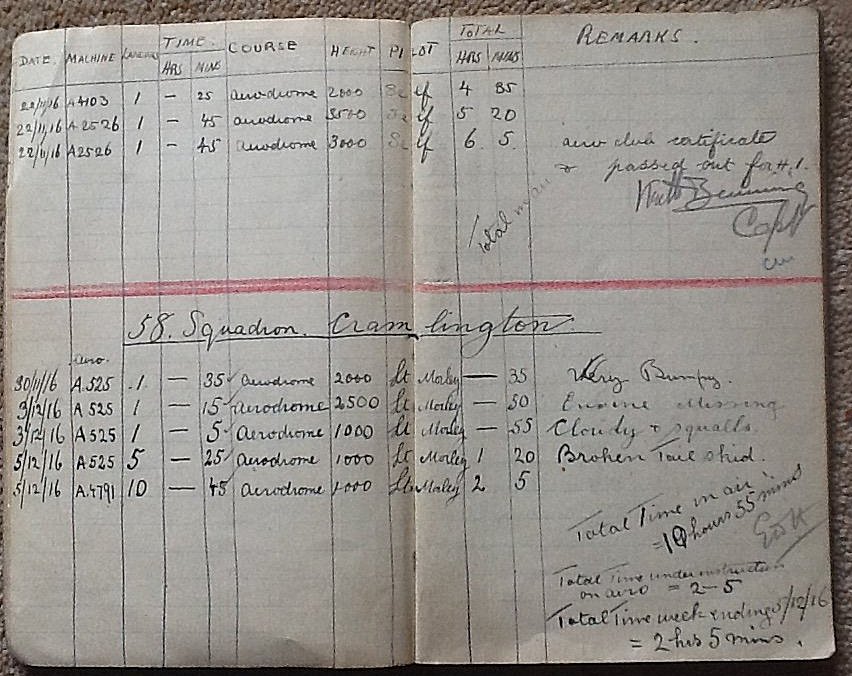 DATE MACHINE LANDINGS TIME. HRS MINS COURSE HEIGHT PILOT TOTAL HRS MINS REMARKS.
22/11/16 A4103 1 — 25 aerodrome 2000 Self 4 35
22/11/16 A2526 1 — 45 aerodrome 3500 Self 5 20
22/11/16 A2526 1 — 45 Aerodrome 3000 Self 6 5. aero club certificate
& passed out for H.1.
Capt
Total
58. Squadron. Cramlington
Avro.
30/11/16 A.525 .1 — 35 aerodrome 2000 Lt Morley — 35 Very Bumpy.
3/12/16 A 525 1 — 15 aerodrome 2500 Lt Morley — 50 Engine Missing
3/12/16 A 525 1 — 5 Aerodrome 1000 Lt Morley — 55 Cloudy & squalls.
5/12/16 A.525 5 — 25 Aerodrome 1000 Lt Morley 1 20 Broken Tail skid.
5/12/16 A.4791 10 — 45 aerodrome 1000 Lt Morley 2 5
Total Time in air
= 10 hours 55 mins
Total Time under instruction
on avro = 2-5
Total Time week ending 5/12/16
= 2 hrs 5 mins.